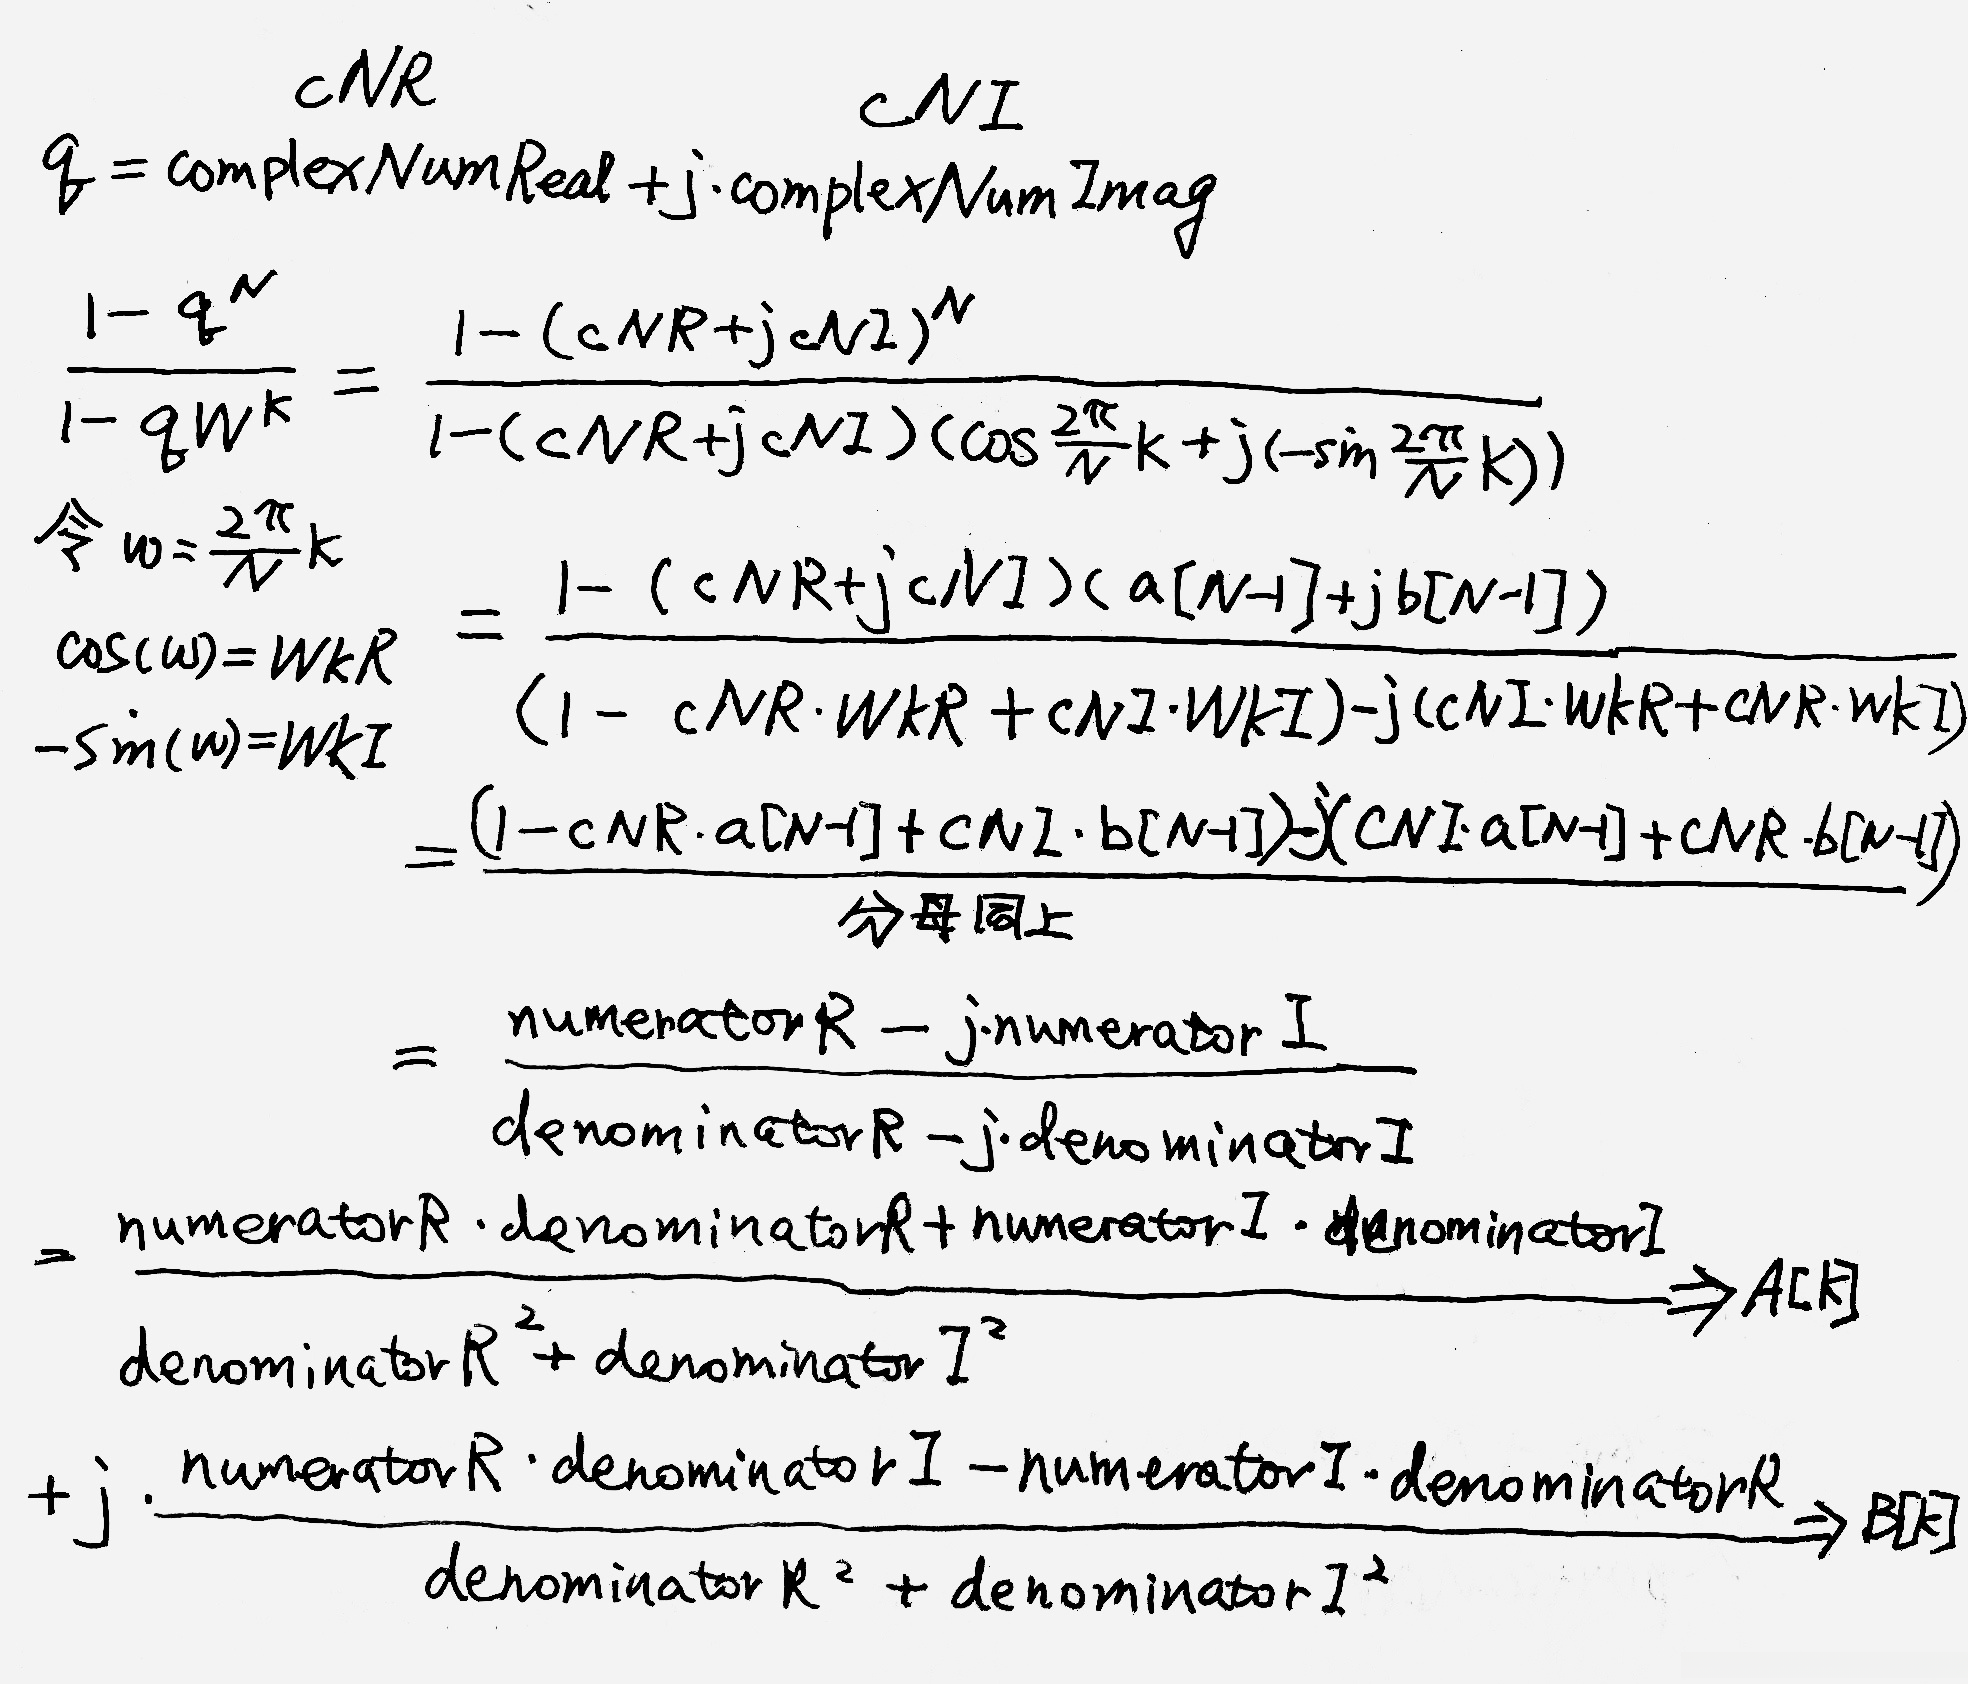 cNR cNI
q = complexNumReal + j·complexNumImag
1 - q^N / 1 - qW^k = 1 - (cNR + jcNI)^N / 1 - (cNR + jcNI)(cos 2π/N k + j(-sin 2π/N k))
令 w = 2π/N k
= 1 - (cNR + jcNI)(a[N-1] + jb[N-1]) / (1 - cNR·WkR + cNI·WkI) - j(cNI·WkR + cNR·WkI)
cos(w) = WkR
-sin(w) = WkI
= (1 - cNR·a[N-1] + cNI·b[N-1]) - j(cNI·a[N-1] + cNR·b[N-1]) / 分母同上
= numeratorR - j·numeratorI / denominatorR - j·denominatorI
= numeratorR·denominatorR + numeratorI·denominatorI / denominatorR² + denominatorI² ⇒ A[k]
+ j· numeratorR·denominatorI - numeratorI·denominatorR / denominatorR² + denominatorI² ⇒ B[k]